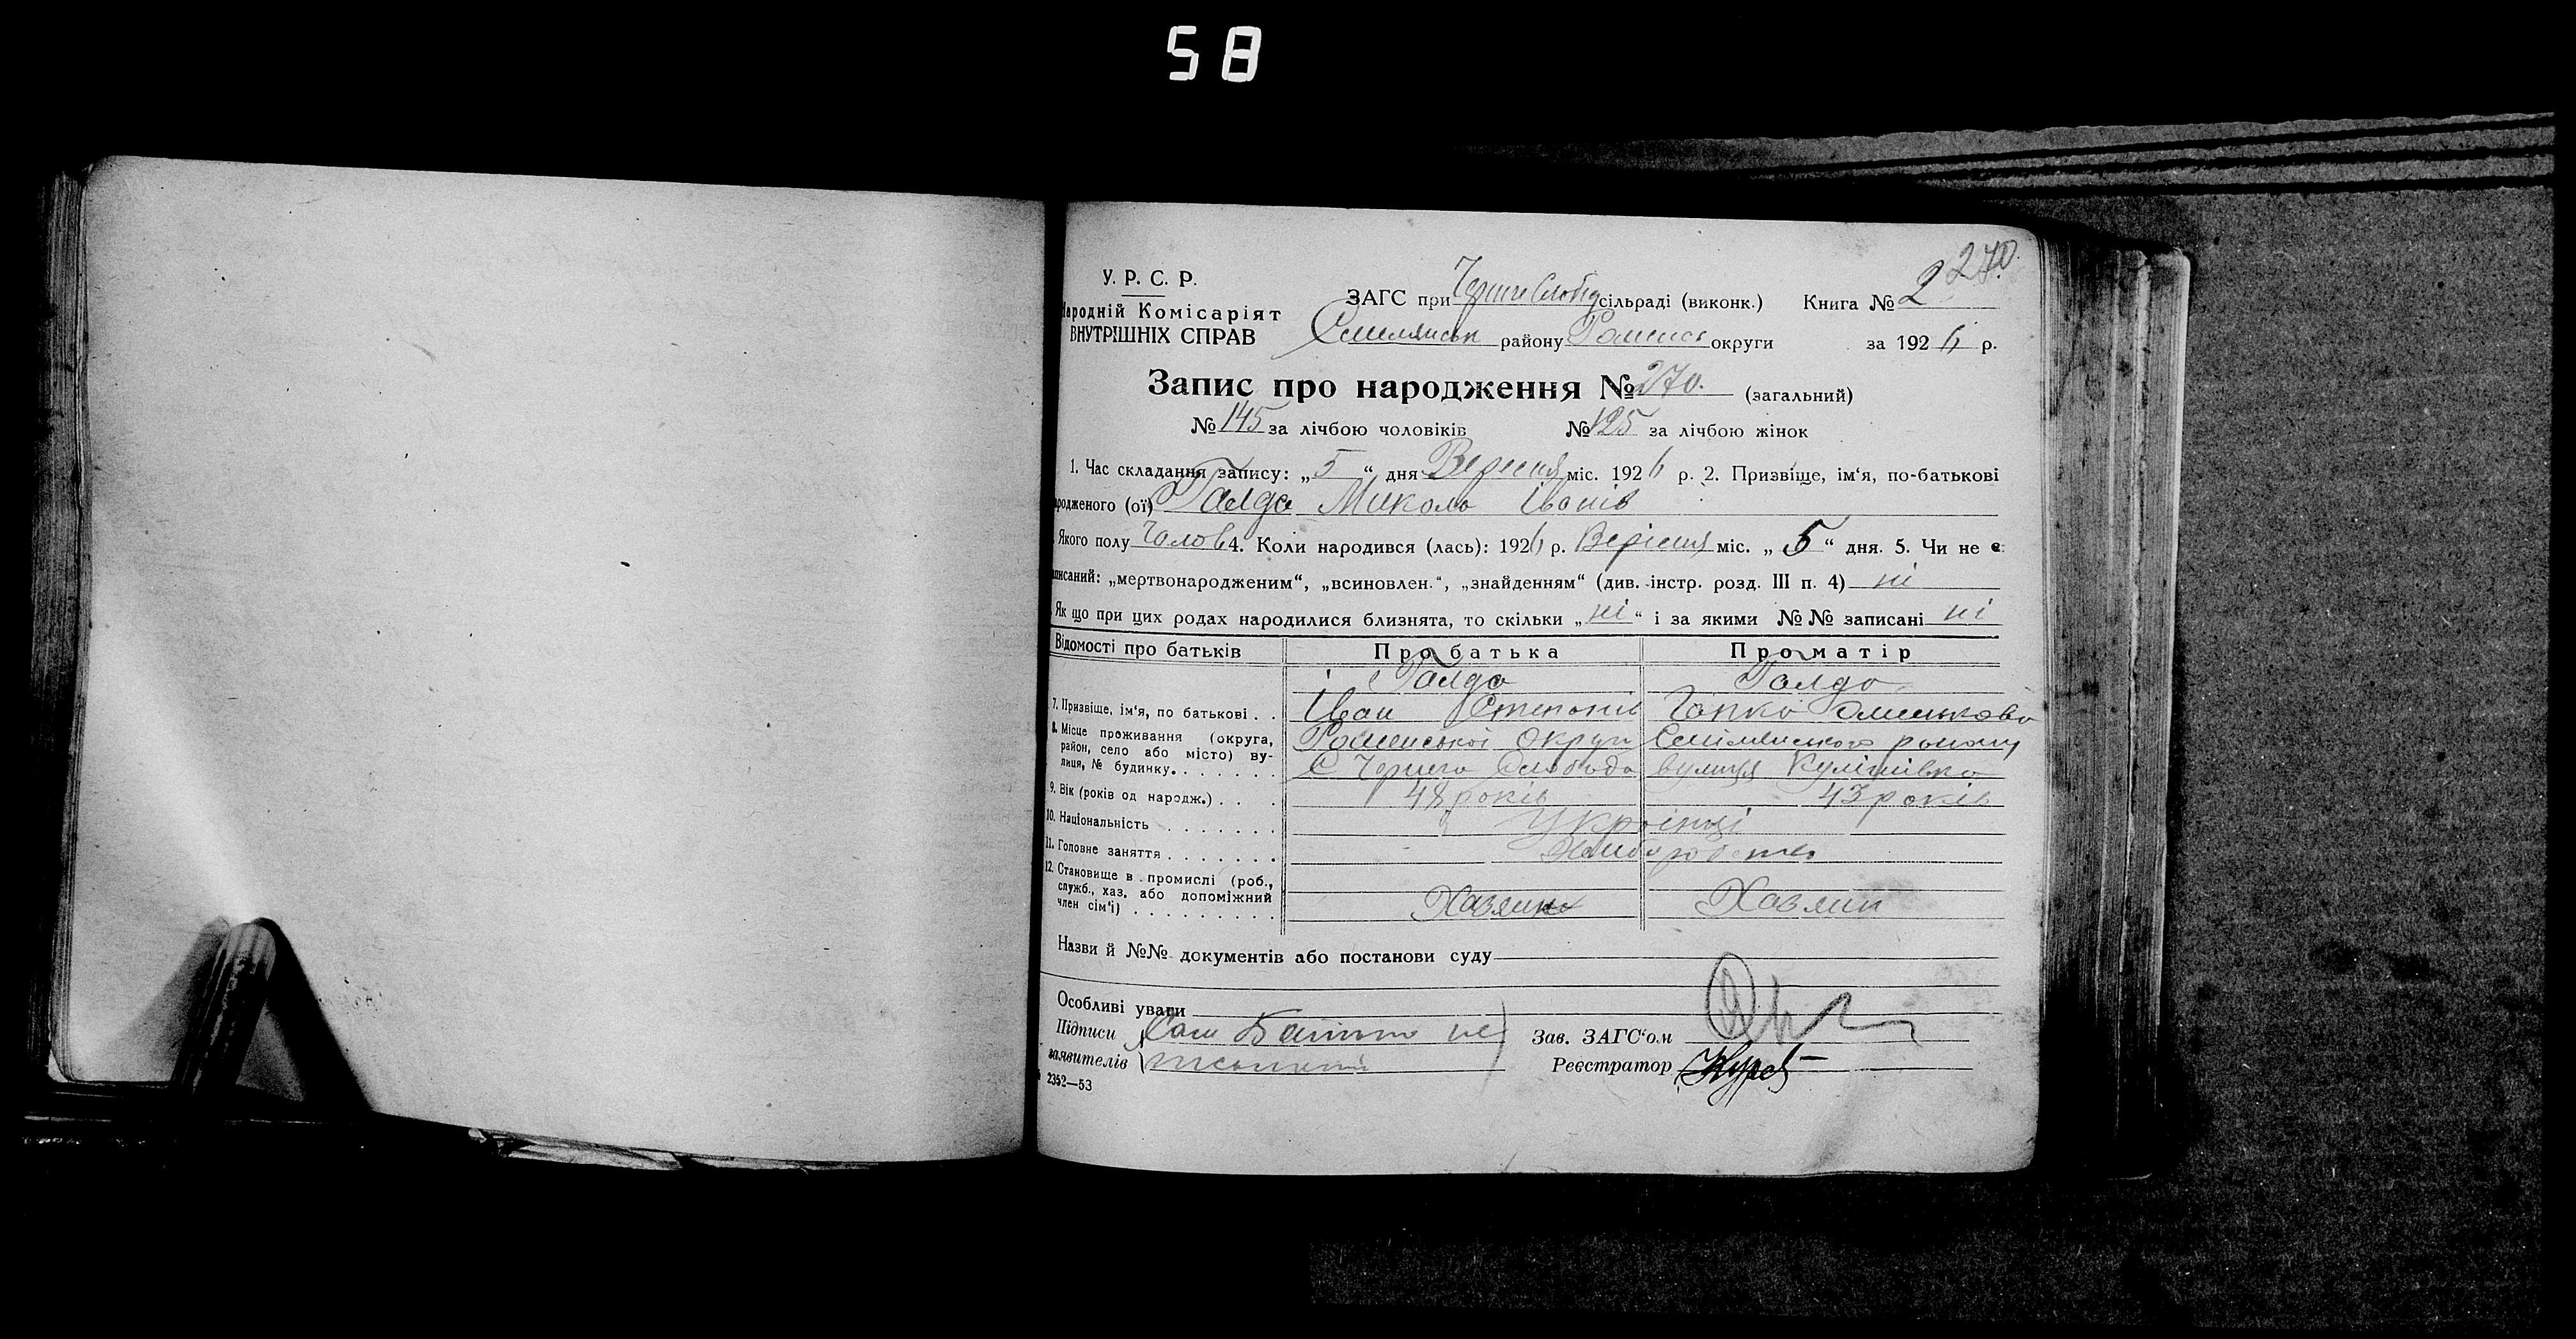 58
270.
У. Р. С. Р.
Народній Комісаріят
ВНУТРІШНІХ СПРАВ
ЗАГС при Черне Слобід сільраді (виконк.) Книга № 2
Смілянськ району Роменсь округи за 1926 р.
Запис про народження № 270. (загальний)
№ 145 за лічбою чоловіків № 125 за лічбою жінок
1. Час складання запису: „ 5 “ дня Вересня міс. 1926 р. 2. Призвіще, ім‘я, по-батькові
родженого (ої) Галда Микола Іванів
Якого полу Чолов 4. Коли народився (лась): 1926 р. Верісня міс. „ 5 “ дня. 5. Чи не є
писаний: „мертвонародженим“, „всиновлен.“, „знайденням“ (див. інстр. розд. III п. 4) ні
Як що при цих родах народилися близнята, то скільки „ ні “ і за якими №№ записані ні
Відомості про батьків Про батька Про матір
Галда Галда
7. Призвіще, ім‘я, по батькові . . Іван Степанів Гапка
8. Місце проживання (округа, район, село або місто) вулиця, № будинку. Роменської Округи Смілянського району
С Черега Слобода вулиця Кулішівка
9. Вік (років од народж.) . . . 48 років 43 років
10. Національність Українці
11. Головне заняття Хліборобство
12. Становище в промислі (роб., служб., хаз. або допоміжний член сім‘ї) Хазяин Хазяин
Назви й №№ документів або постанови суду
Особливі уваги
Підписи Сам Батько не Зав. ЗАГС‘ом
заявителів Реєстратор
2352—53